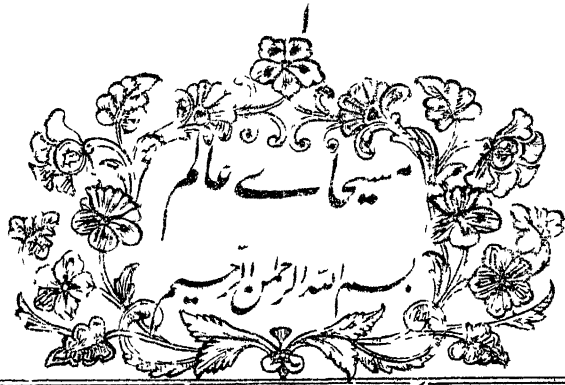 ۱
مسیحائے عالم
بسم اللہ الرحمٰن الرحیم